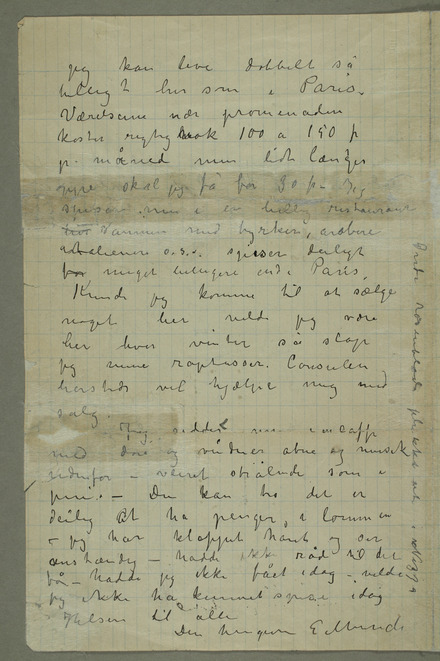 jeg kan leve dobbelt så
billigt her som i Paris.
Værelserne nær promenaden
koster rigtig nok 100 a 150 f
pr måned men lidt længer
oppe skal jeg få for 30 f – Jeg
spiser nu i en billig restaurant
sammen med tyrker, arabere
italienere o.s.v. spiser deiligt
for meget billigere end i Paris.
Kunde jeg komme til at sælge
noget her vilde jeg være
her hver vinter så slap
jeg mine Consulen
hersteds vil hjælpe mig med
salg.
Jeg sidder nu i en caffe
med døre og vinduer åbne og musik
udenfor – veiret strålende som i
juni. – Du kan tro det er
deilig at ha penger i lommen
– jeg har klippet håret og ser
anstændig – hadde ikke råd til det
før – hadde jeg ikke fået idag – vilde
jeg ikke ha kunnet spise idag
Hilsen til alle
Din hengivne E. Munch